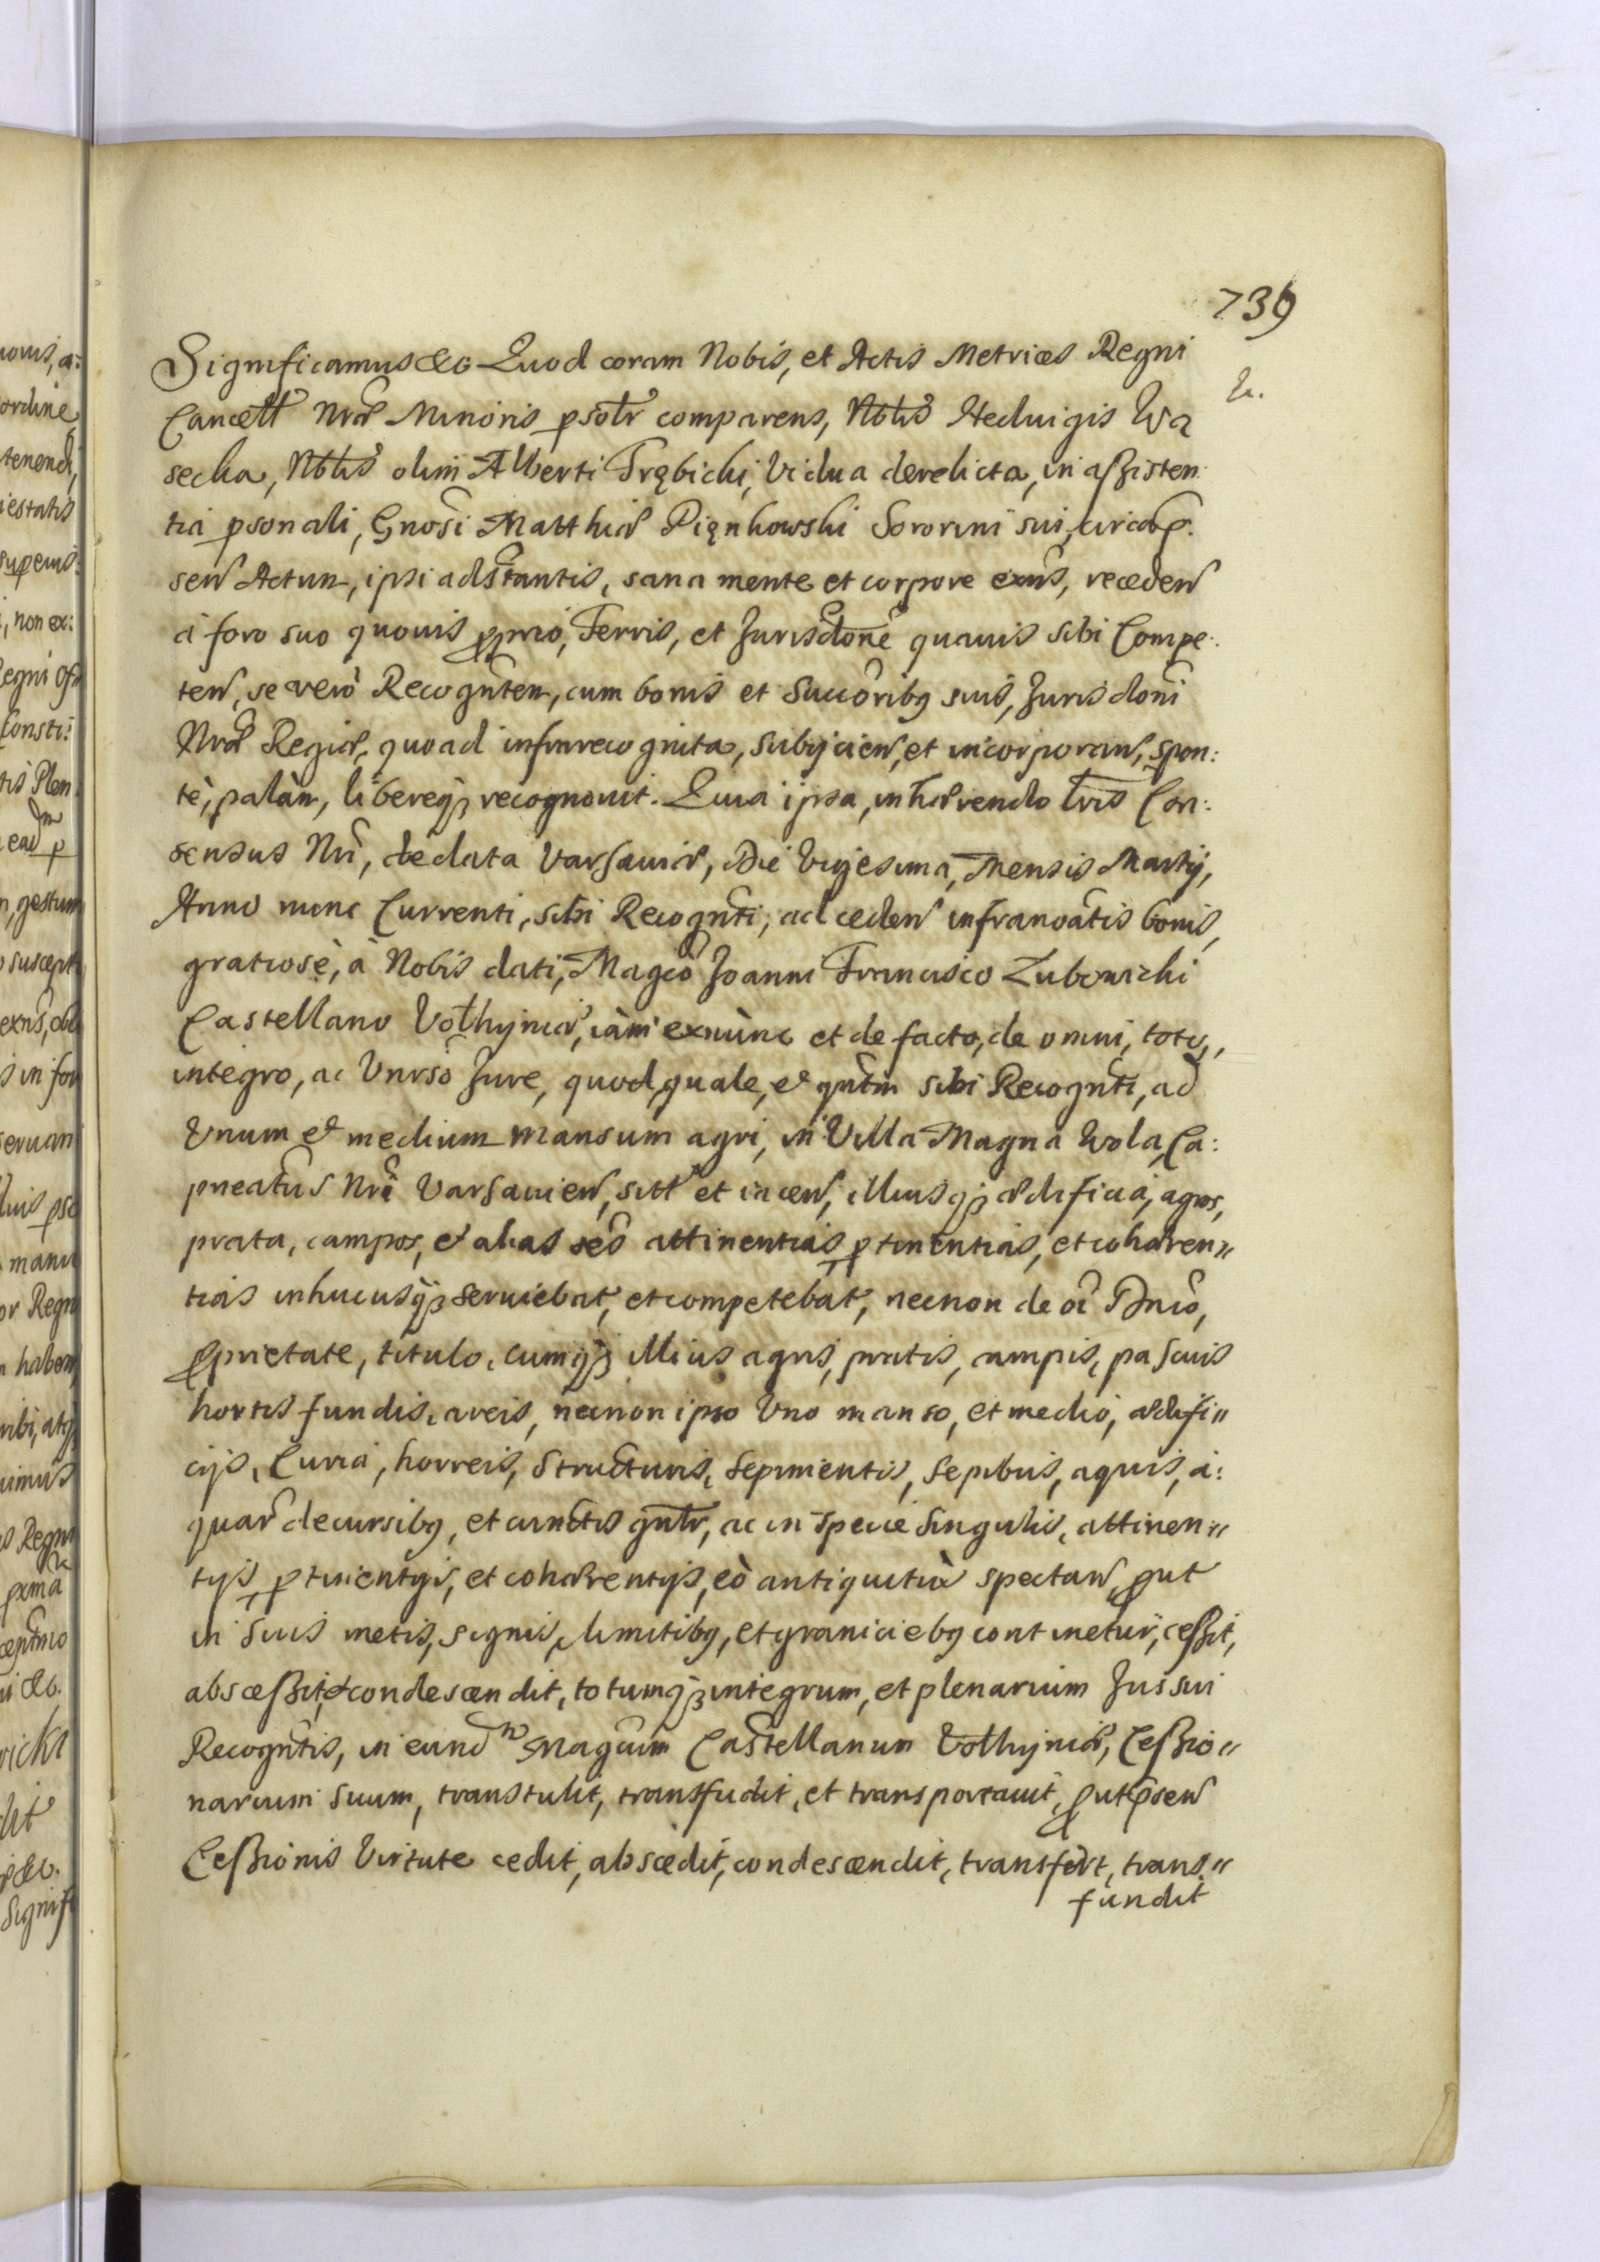 739
Significamus &c Quod coram Nobis, et Actis Metrices Regni
Cancell Nræ Minoris psolr comparens, Nblis Heduigis Wa
secka, Nblis olim Alberti Trębicki, Vidua derelicta, in assisten
tia psonali, Gnosi Matthiæ Pięnkowski Sororini sui, circa p.
sen Actum, ipsi adstantis, sana mente et corpore exns, receden
à foro suo quouis pprio, Terris, et Jurisdone quauis sibi Compe:
ten, se verò Recognten, cum bonis et Succoribq suis, Jurisdoni
Nræ Regiæ, quoad infrarecognita, subijcien, et incorporan, spon:
tè, palàm, libereqз recognouit. Quia ipsa, inhærendo lris Con:
sensus Nri, de data Varsauiæ, Die Vigesima, Mensis Martij,
Anno nunc Currenti, sibi Recognti, ad ceden infranoatis bonis,
gratiosè, à Nobis dati, Magco Joanni Francisco Lubowicki
Castellano Volhyniæ, iàm exnùnc et de facto, de omni, toto,
integro, ac Vnrso Jure, quod, quale, et qntm sibi Recognti, ad
Vnum et medium mansum agri, in Villa Magna Wola, Ca:
pneatus Nri Varsauien, sitt et iacen, illiusqз ædificia, agros,
prata, campos, et alias oes attinentias, ptinentias, et cohæren"
tias inhucusqз seruiebat, et competebat, necnon de oi Dnio,
pprietate, titulo, cumqз illius agris, pratis, campis, pascuis
hortis fundis, areis, necnon ipso Vno manso, et medio, ædifi"
cijs, Curia, horreis, structuris, sepimentis, sepibus, aquis, a:
quar decursibq, et cunctis gnlr, ac in specie singulis, attinen"
tijs, ptinentijs, et cohærentijs, eò antiquitùs spectan, put
in suis metis, signis, limitibq, et graniciebq continetur, cessit,
abscessit, et condescendit, totumqз integrum, et plenarium Jus sui
Recogntis, in eundm Magcum Castellanum Volhyniæ, Cessio"
narium suum, transtulit, transfudit, et transportauit, put psen
Cessionis Virtute cedit, abscedit, condescendit, transfert, trans"
fundit